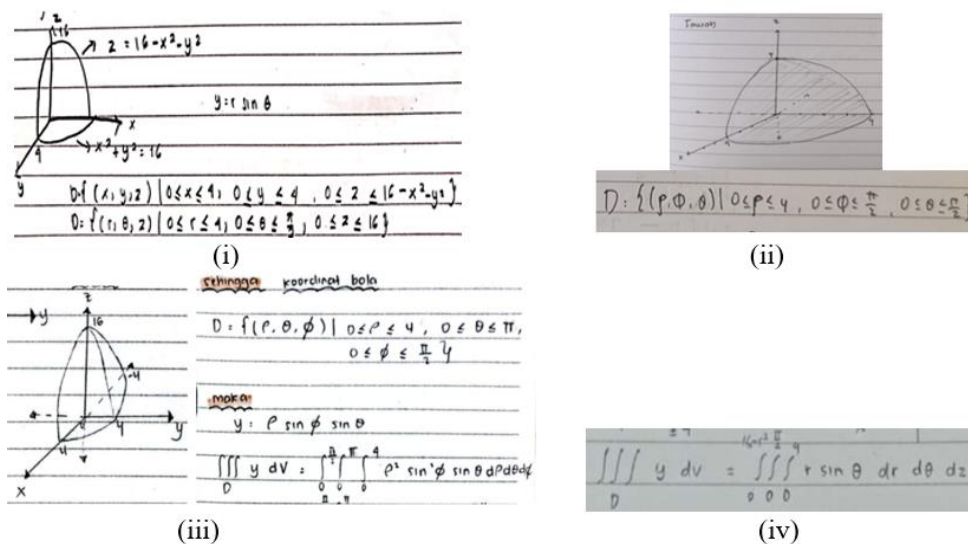 z
16
z = 16 - x² - y²
y = r sin θ
x
4
x² + y² = 16
y
D = { (x, y, z) | 0 ≤ x ≤ 4, 0 ≤ y ≤ 4, 0 ≤ z ≤ 16 - x² - y² }
D = { (r, θ, z) | 0 ≤ r ≤ 4, 0 ≤ θ ≤ π/2, 0 ≤ z ≤ 16 }
(i)
z
4
4
4
x
D : { (ρ, φ, θ) | 0 ≤ ρ ≤ 4, 0 ≤ φ ≤ π/2, 0 ≤ θ ≤ π/2
(ii)
sehingga koordinat bola
y
z
16
-4
4
y
4
x
D = { (ρ, θ, φ) | 0 ≤ ρ ≤ 4, 0 ≤ θ ≤ π,
0 ≤ φ ≤ π/2 }
maka
y = ρ sin φ sin θ
∭_D y dV = ∫_0^{π/2} ∫_0^π ∫_0^4 ρ² sin² φ sin θ dρ dθ dφ
(iii)
∭_D y dv = ∫_0^{16-r²} ∫_0^{π/2} ∫_0^4 r sin θ dr dθ dz
(iv)